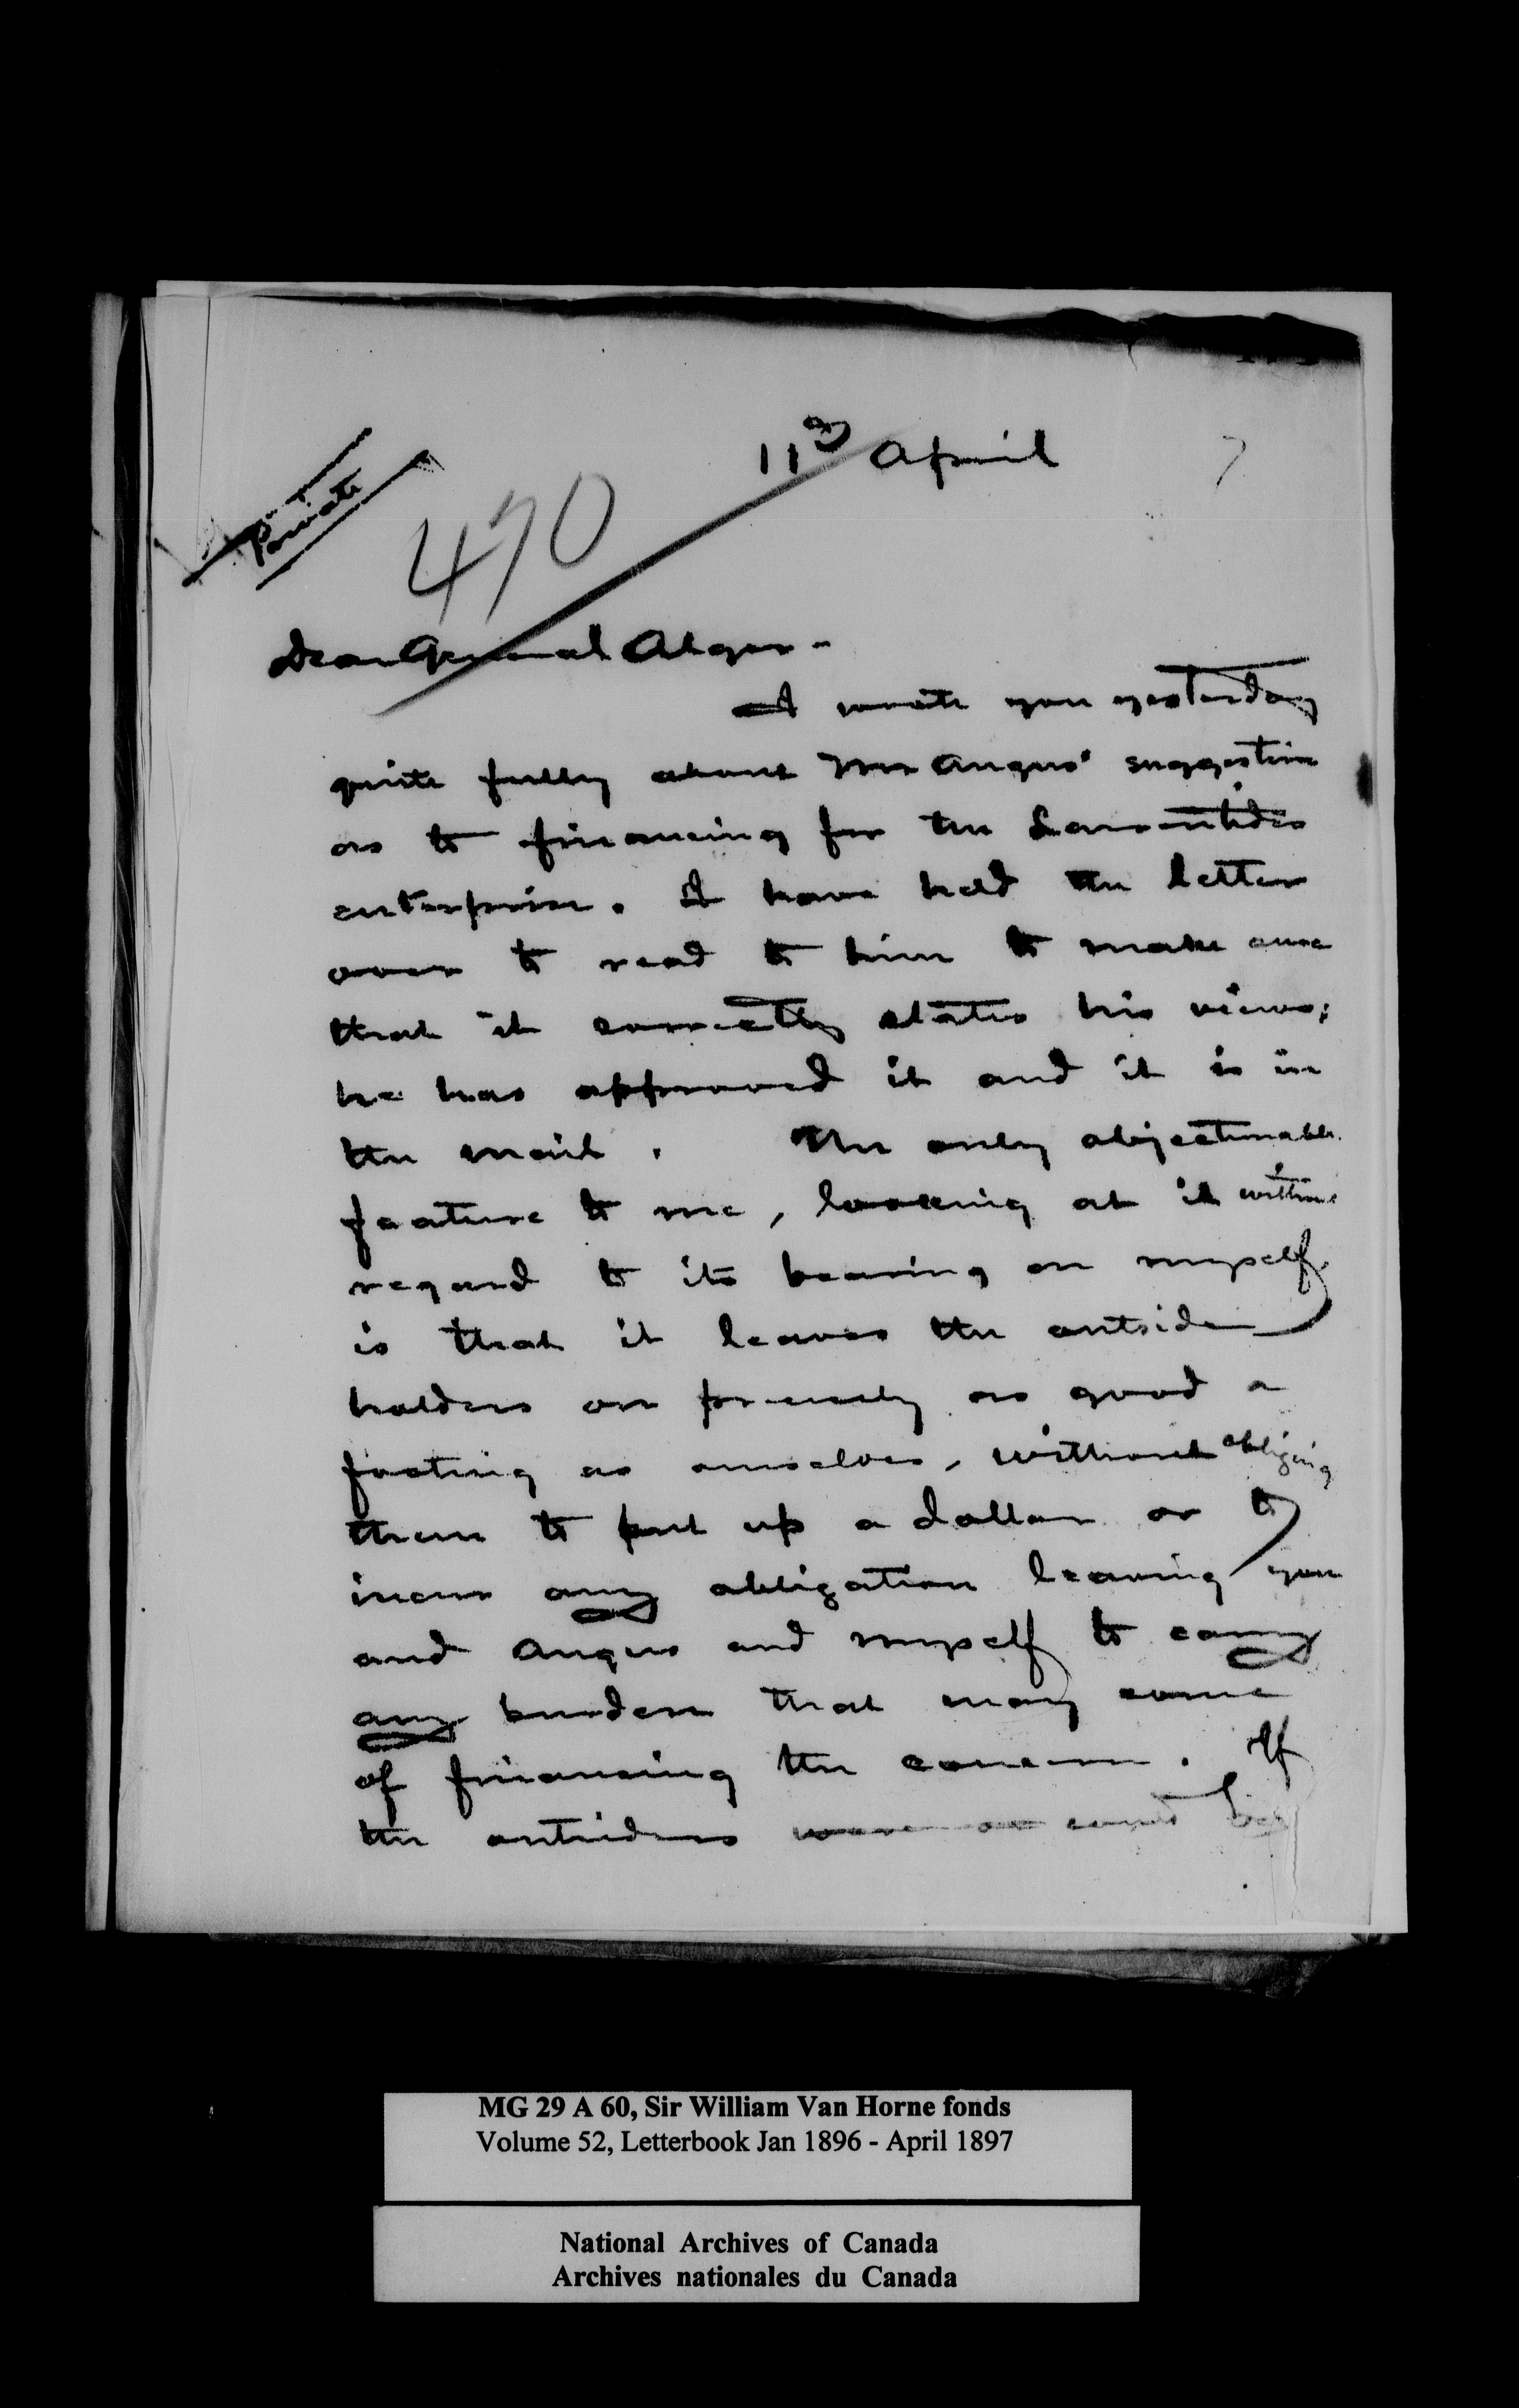 11th April 7
Private
470
Dear General Alger -
I wrote you yesterday
quite fully about Mr Angus' suggestion
as to financing for the Laurentides
enterprise. I have held the letter
over to read to him to make sure
that it correctly states his views;
he has approved it and it is in
the mail. The only objectionable
feature to me, looking at it without
regard to its bearing on myself,
is that it leaves the outside
holders on precisely as good a
footing as ourselves, without obliging
them to put up a dollar or to
incur any obligation leaving you
and Angus and myself to carry
any burden that may come
of financing the concern. If
the outsiders were or could be
MG 29 A 60, Sir William Van Horne fonds
Volume 52, Letterbook Jan 1896 - April 1897
National Archives of Canada
Archives nationales du Canada